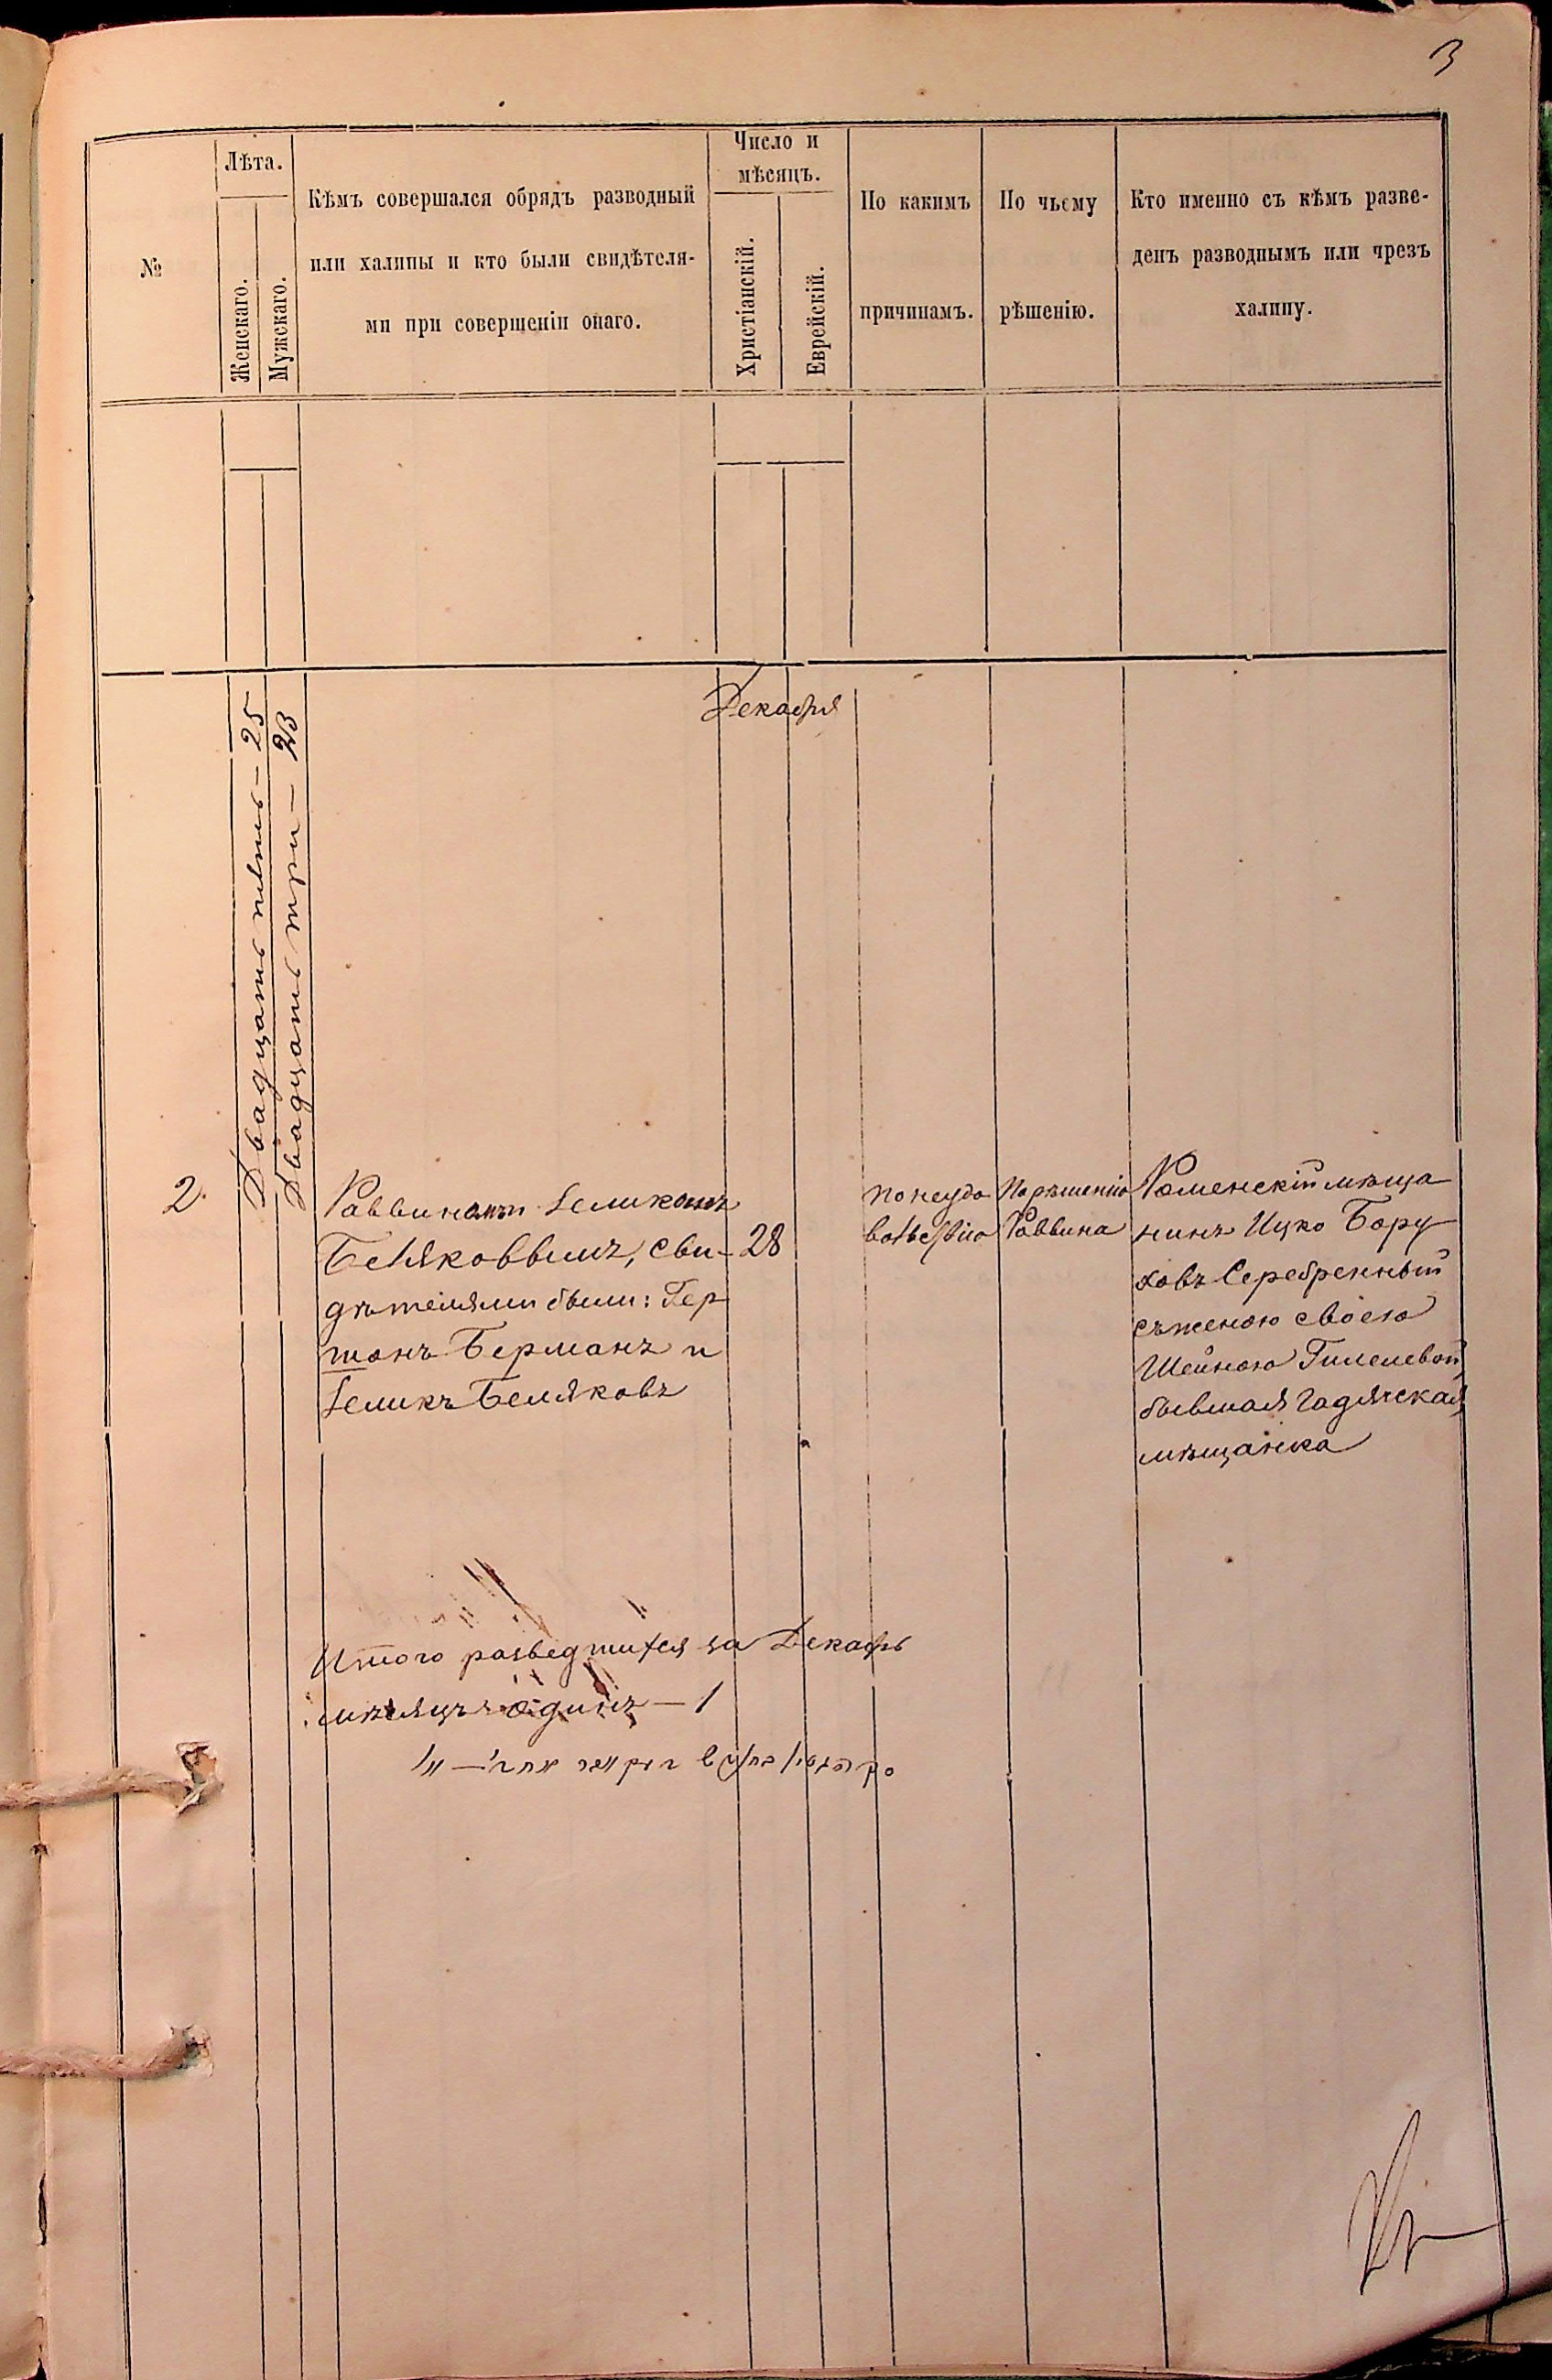 3
№
Лѣта.
Женскаго.
Мужскаго.
Кѣмъ совершался обрядъ разводный
или халицы и кто были свидѣтеля-
ми при совершеніи онаго.
Число и
мѣсяцъ.
Христіанскій.
Еврейскій.
По какимъ
причинамъ.
По чьему
рѣшенію.
Кто именно съ кѣмъ разве-
денъ разводнымъ или чрезъ
халицу.
Декабря
2.
Двадцать пять - 25
Двадцать три - 23
Раввиномъ Земикомъ
Беляковвымъ, сви-
дѣтелями были: Гер
шонъ Берманъ и
Земикъ Беляковъ
28
по неудо
вольствію
По рѣшенію
Раввина
Роменскій мѣща
нинъ Ицко Бору
ховъ Серебренный
съ женою своею
Шейною Гиммелевой
бывшая Гадячская
мѣщанка
Итого разведшихся за Декабрь
мѣсяцъ одинъ — 1